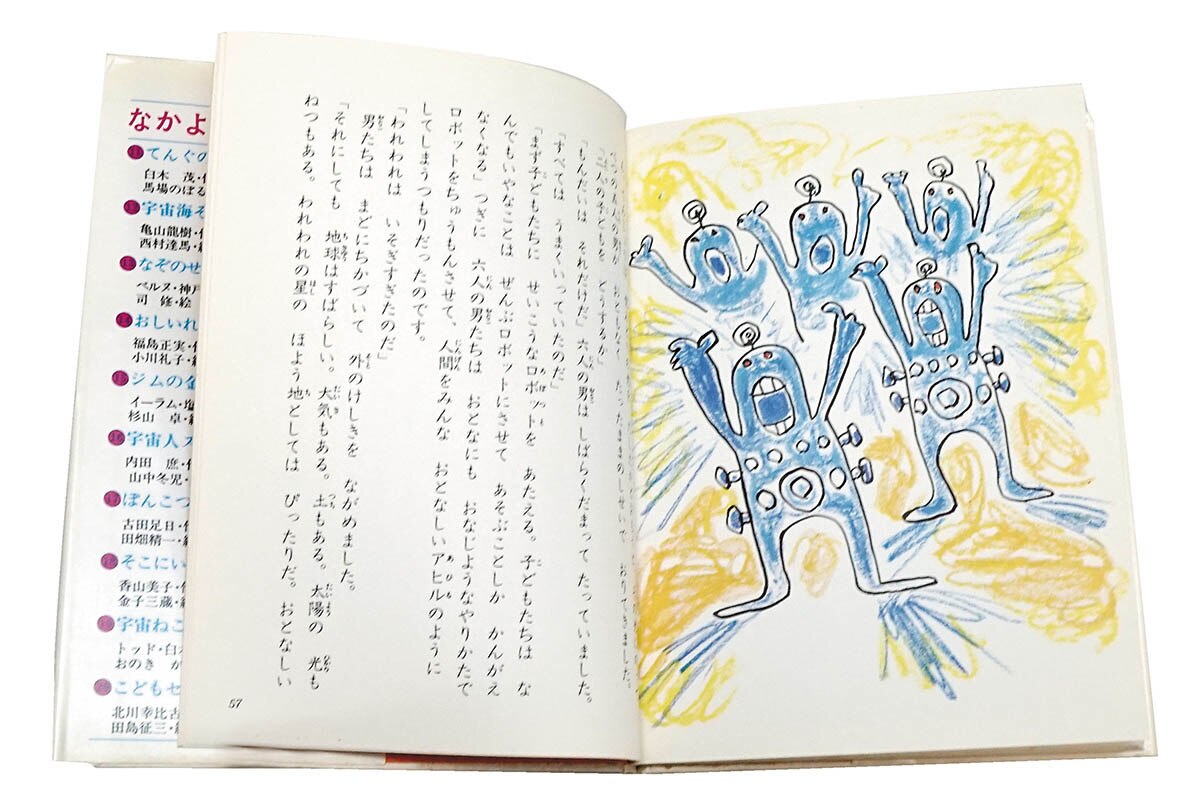 「すべては　うまくいっていたのだ」
「もんだいは　それだけだ」六人の男はしばらくだまって たっていました。
「まず子どもたちに　せいこうなロボットを　あたえる。子どもたちは　な
んでもいやなことは　ぜんぶロボットにさせて　あそぶことしか　かんがえ
なくなる」つぎに　六人の男たちは　おとなにも　おなじようなやりかたで
ロボットをちゅうもんさせて、人間をみんな　おとなしいアヒルのように
してしまうつもりだったのです。
「われわれは　いそぎすぎたのだ」
男たちは　まどにちかづいて　外のけしきを　ながめました。
「それにしても　地球はすばらしい。大気もある。土もある。太陽の　光も
ねつもある。われわれの星の　ほよう地としては　ぴったりだ。おとなしい
57
なかよ
てんぐの
白木　茂・作
馬場のぼる
宇宙海ぞ
亀山龍樹・作
西村達馬・絵
なぞのせ
ベルヌ・神戸
司　修・絵
おしいれ
福島正実・作
小川礼子・絵
ジムの金
イーラム・塩
杉山　卓・絵
宇宙人ス
内田　庶・作
山中冬児・絵
ぽんこつ
古田足日・作
田畑精一・絵
そこにい
香山美子・作
金子三蔵・絵
宇宙ねこ
トッド・白木
おのき　が
こどもセ
北川幸比古
田島征三・絵